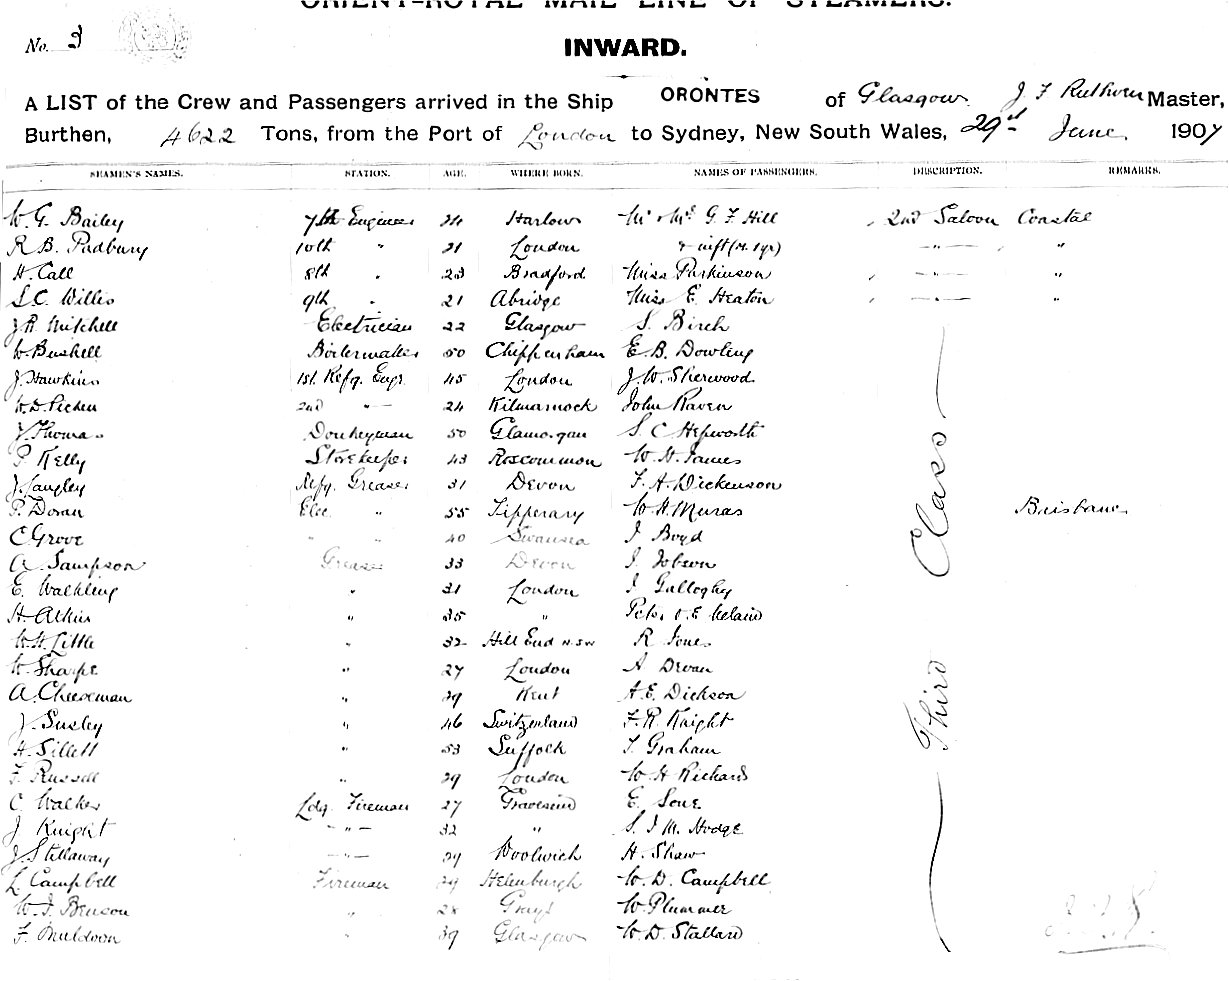 ORIENT-ROYAL MAIL LINE OF STEAMERS.
No. 3
INWARD.
A LIST of the Crew and Passengers arrived in the Ship ORONTES of Glasgow J F Ruthven Master,
Burthen, 4622 Tons, from the Port of London to Sydney, New South Wales, 29th June 1907
SEAMEN'S NAMES. STATION. AGE. WHERE BORN. NAMES OF PASSENGERS. DESCRIPTION. REMARKS.
W. G. Bailey 7th Engineer 24 Harlow Mr & Mrs G. F. Hill 2nd Saloon Coastal
R. B. Padbury 10th " 21 London & inft (M. 1yr) " "
H. Call 8th " 23 Bradford Miss Parkinson " "
S. C. Willis 9th " 21 Abridge Miss E Heaton " "
J. R. Mitchell Electrician 22 Glasgow S. Birch
W. Bushell Boilermaker 50 Chippenham E. B. Dowling
J. Hawkins 1st. Refg. Engr. 45 London J. W. Sherwood
W. D. 2nd " 24 Kilmarnock John Raven
J. Thomas Donkeyman 50 Glamorgan S. C Hepworth
P. Kelly Storekeeper 43 Roscommon W. H. James
J. Langley Refg. Greaser 31 Devon F. A. Dickenson
P. Doran Elec " 55 Tipperary W. H. Muras Brisbane
C. Grove " " 40 Swansea J Boyd
A. Sampson Greaser 33 Devon J. Jobson
E. Walkling " 31 London J Galloghy
H. Atkin " 35 " Peter & E
W. H. Little " 32 Hill End N.S.W R Jones
W. Sharpe " 27 London A Devan
A. Cheeseman " 29 Kent A. E. Dickson
J. Susley " 46 Switzerland F. R. Knight
H. Sillett " 53 Suffolk T. Graham
F. Russell " 29 London W. H Richards
C. Walker Ldg. Fireman 27 Gravesend E.
J Knight " 32 " S. J M. Hodge
J Stellaway " 29 Woolwich H. Shaw
L Campbell Fireman 29 Helenburgh W. D. Campbell
W. J. Benson " 28 Grays W Plummer
F. Muldoon " 39 Glasgow W. D. Stallard
Third Class